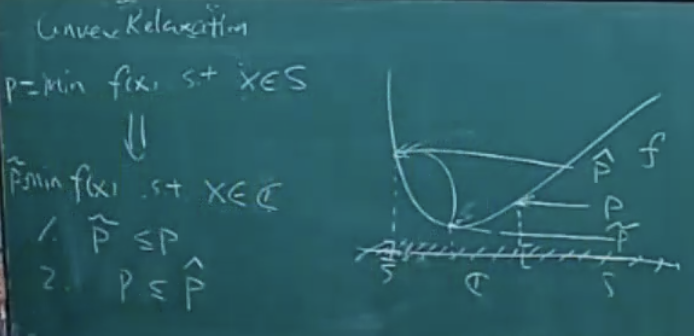 Convex Relaxation
P = min f(x) s.t x ∈ S
⇓
P̃ = min f(x) s.t x ∈ ℂ
1. P̃ ≤ P
2. P ≤ P̂
f
P̂
P
P̃
S ℂ S